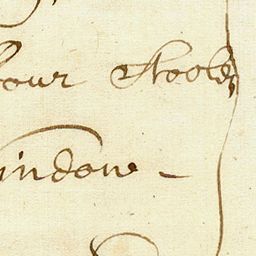 four Stooles
window -